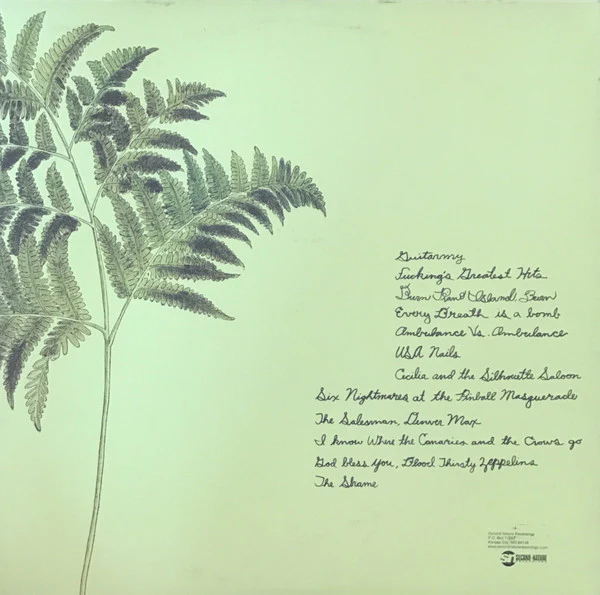 Guitarmy
Fucking's Greatest Hits
Burn Piano Island, Burn
Every Breath is a bomb
Ambulance Vs. Ambulance
USA Nails
Cecilia and the Silhouette Saloon
Six Nightmares at the Pinball Masquerade
The Salesman, Denver Max
I know Where the Canaries and the Crows go
God bless you, Blood Thirsty Zeppelins
The Shame
Second Nature Recordings
P.O. Box 11543
Kansas City, MO 64138
www.secondnaturerecordings.com
SECOND NATURE